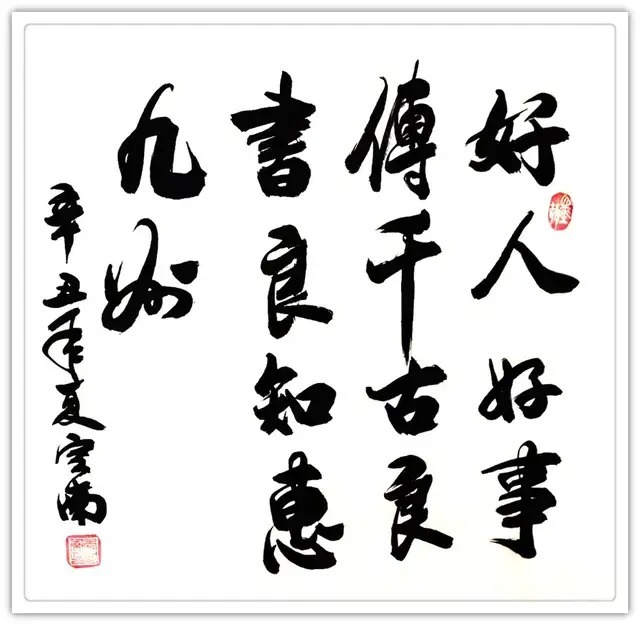 好人好事
傳千古良
書良知惠
九州
辛丑年夏